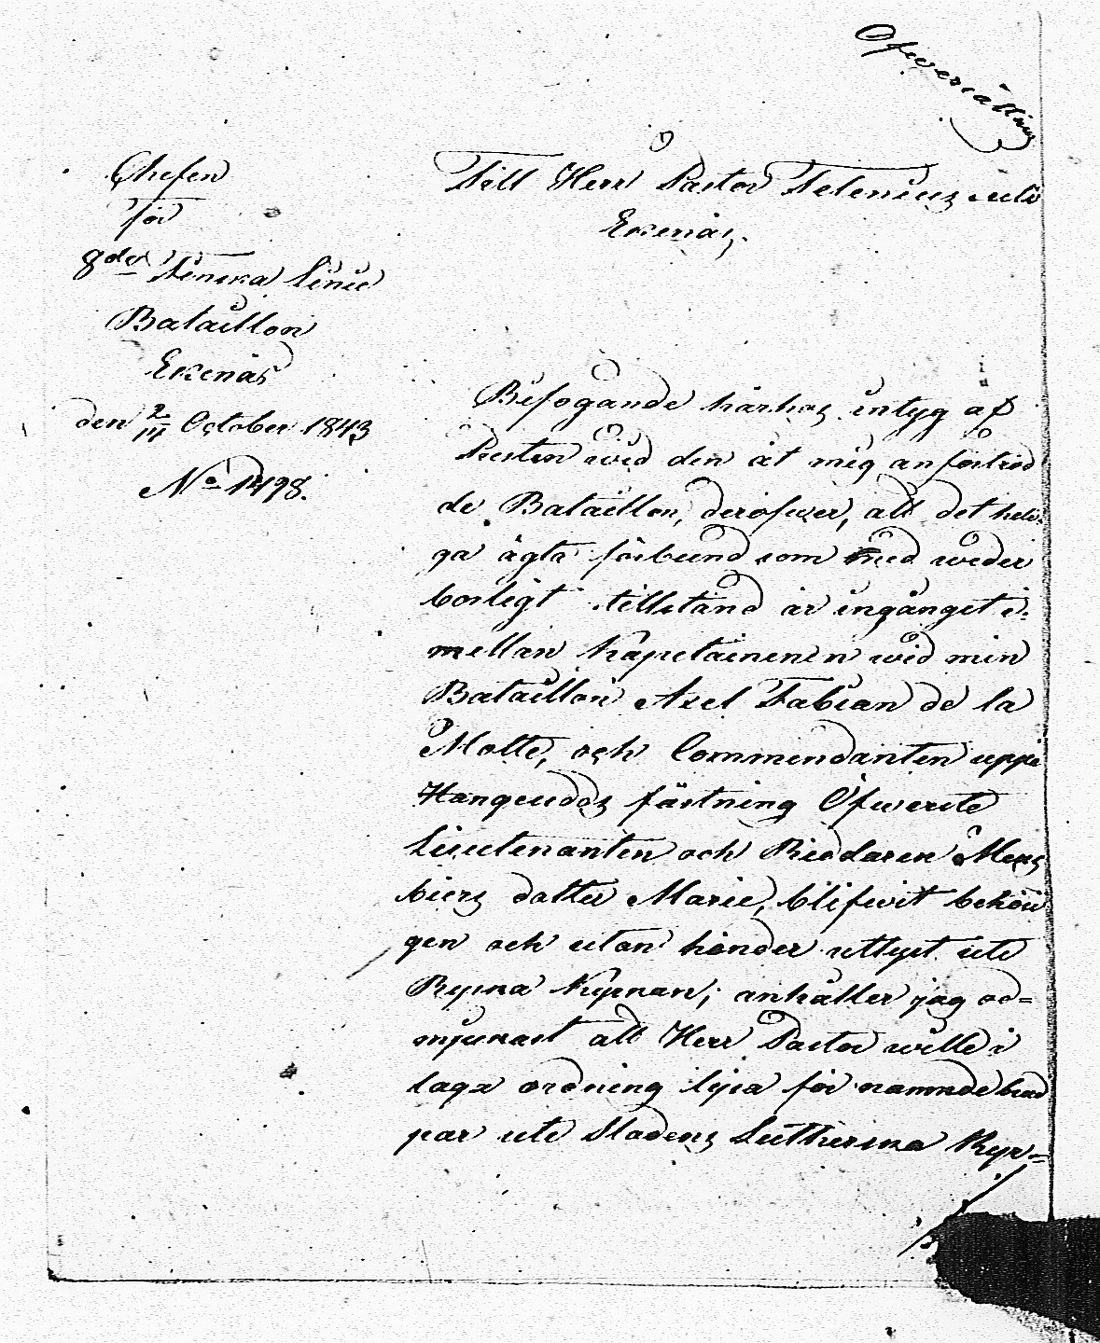 Öfwersättning
Chefen
för
8de Finska Linie
Bataillon
Ekenäs
den 2/14 October 1843
No 1498.
Till Herr Pastor Telenius uti
Ekenäs.
Bifogande härhos intyg af
Presten wid den åt mig anförtrod
de Bataillon, deröfwer, att det heli-
ga ägta förbund som med weder
borligt tillstånd är ingånget i-
mellan Kapetainenen wid min
Bataillon Axel Fabian de la
Motte, och Commendanten uppå
Hangeudds fästning Öfwerste
Lieutenanten och Riddaren
dotter Marie, blifwit behöri
gen och utan hinder utlyst uti
Ryska Kyrkan; anhåller jag öd-
mjukast att Herr Pastor wille i
laga ordning lysa för nämnde brud
par uti Stadens Lutherska Kyr-